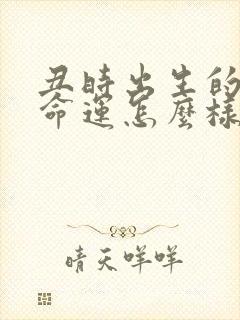 丑時出生的
命運怎麼樣
晴天咩咩